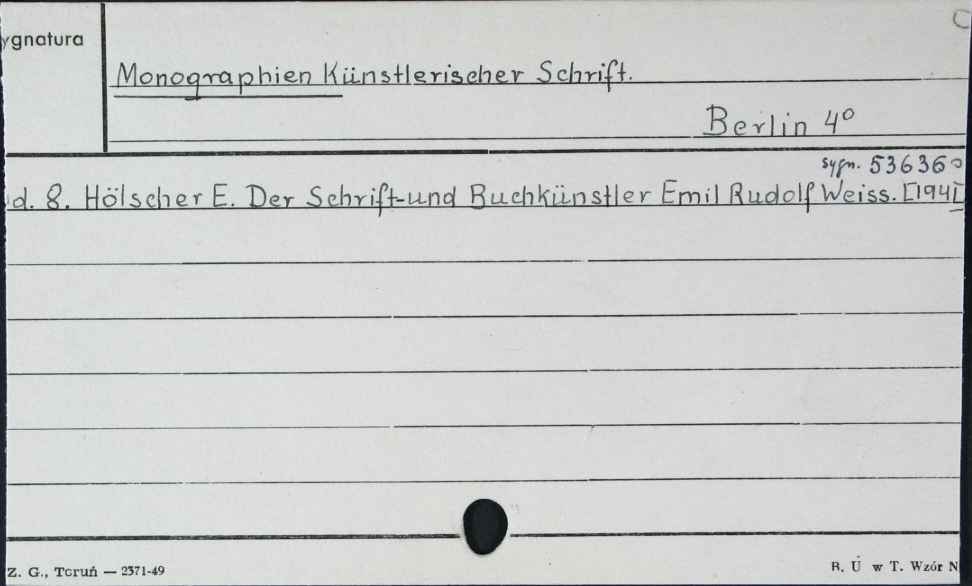 C
ygnatura
Monographien Künstlerischer Schrift.
Berlin 4°
sygn. 536360
d. 8. Hölscher E. Der Schrift-und Buchkünstler Emil Rudolf Weiss. [194
Z. G., Toruń — 2371-49
B. U w T. Wzór N